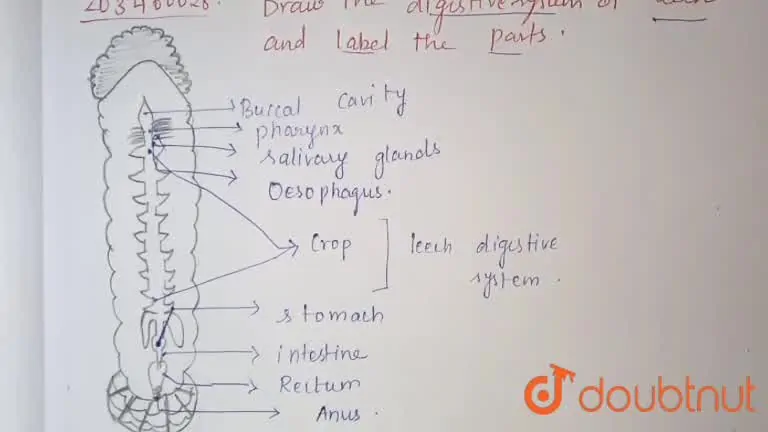 203460028. Draw the digestive system of leech
and label the parts.
Buccal cavity
pharynx
salivary glands
Oesophagus.
Crop
leech digestive
system.
stomach
intestine
Rectum
Anus.
doubtnut